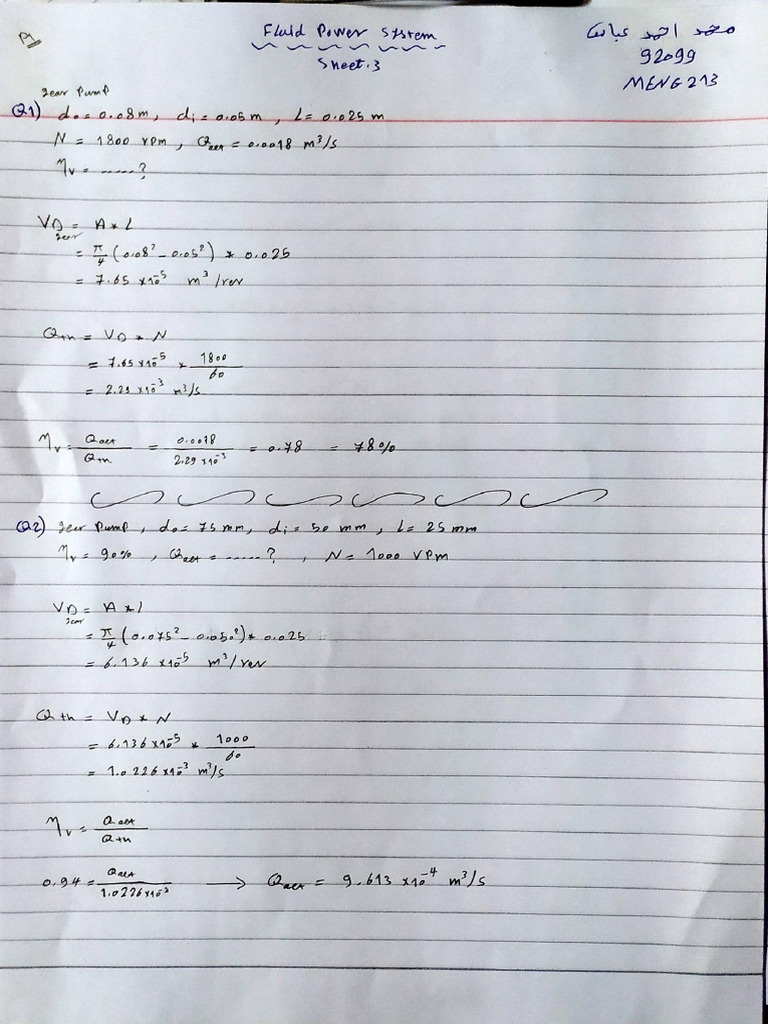 P1
Fluid Power System
Sheet.3
محمد احمد عباس
92099
MENG 213
gear Pump
Q1) do = 0.08 m, di = 0.05 m, L = 0.025 m
N = 1800 rpm, Qact = 0.0018 m³/s
ηv = ......?
VD = A * L
gear
= π/4 (0.08² - 0.05²) * 0.025
= 7.65 x10⁻⁵ m³/rev
Qth = VD * N
= 7.65 x10⁻⁵ * 1800/60
= 2.29 x10⁻³ m³/s
ηv = Qact/Qth = 0.0018/2.29 x10⁻³ = 0.78 = 78%
Q2) gear Pump, do = 75 mm, di = 50 mm, L = 25 mm
ηv = 90%, Qact = ......?, N = 1000 rpm
VD = A * L
gear
= π/4 (0.075² - 0.050²) * 0.025
= 6.136 x10⁻⁵ m³/rev
Qth = VD * N
= 6.136 x10⁻⁵ * 1000/60
= 1.0226 x10⁻³ m³/s
ηv = Qact/Qth
0.94 = Qact/1.0226 x10⁻³ → Qact = 9.613 x10⁻⁴ m³/s